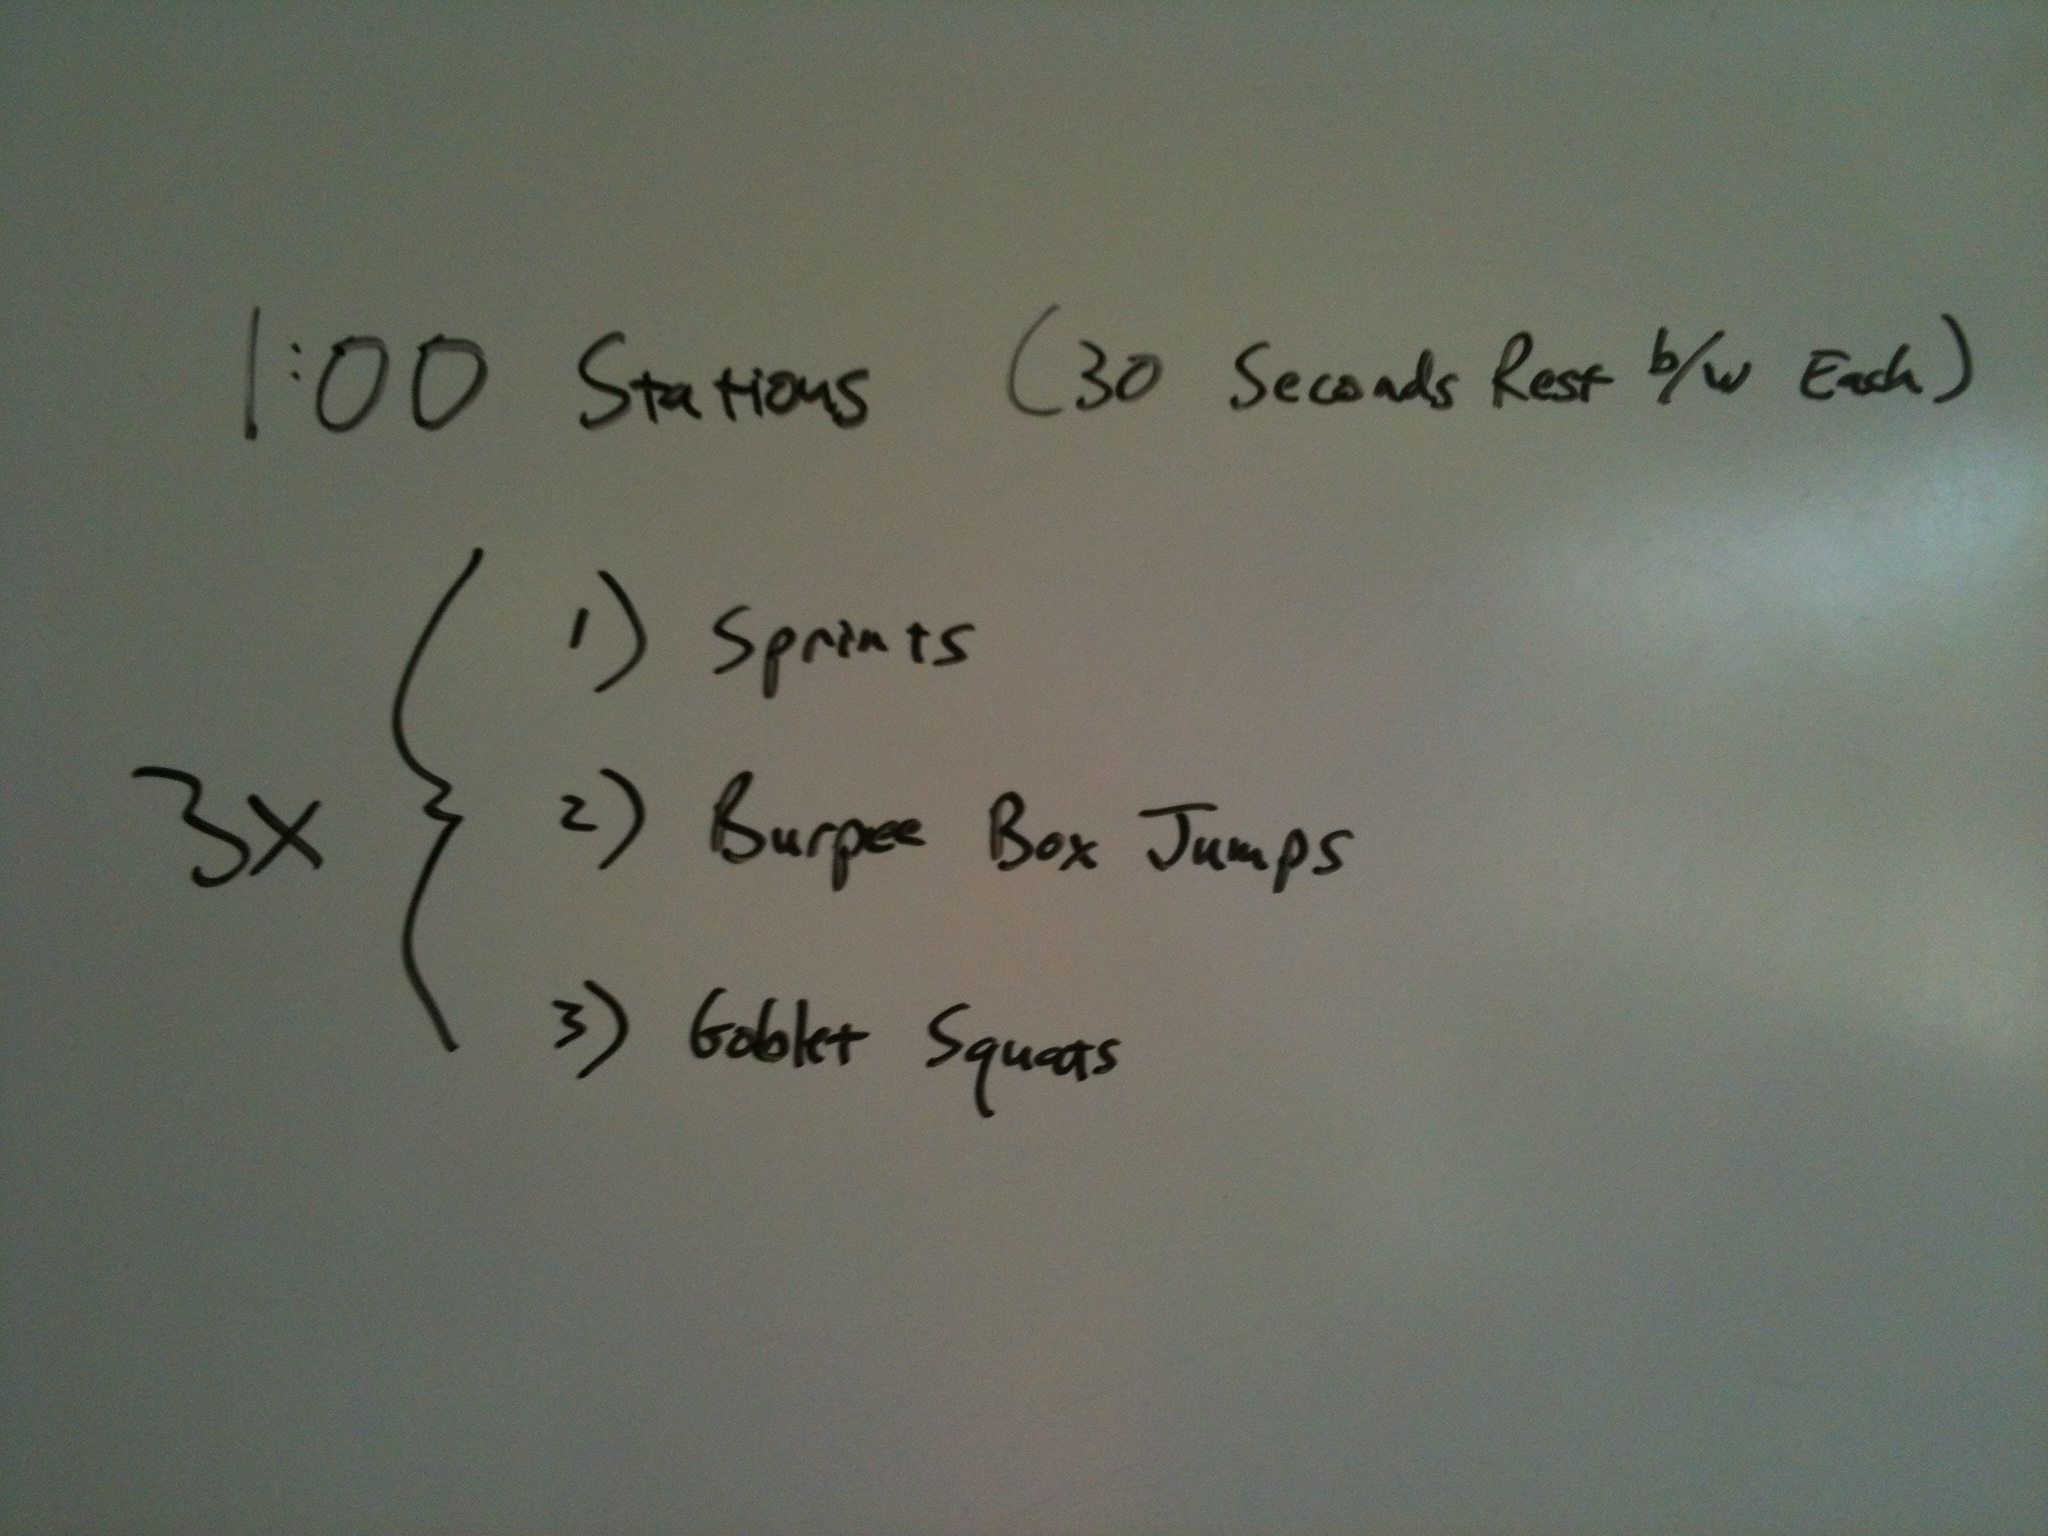 1:00 Stations (30 Seconds Rest b/w Each)
1) Sprints
3x { 2) Burpee Box Jumps
3) Goblet Squats